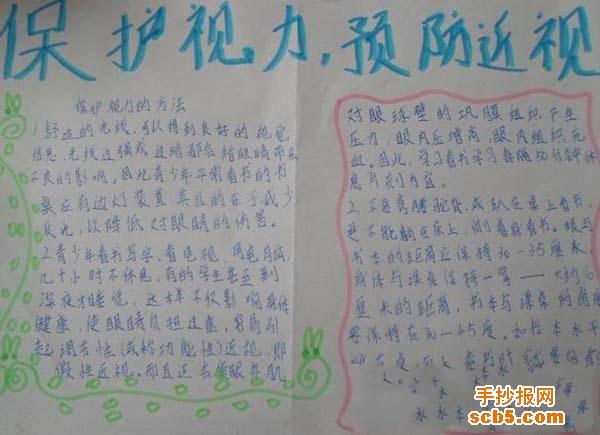 保护视力，预防近视
保护视力的方法
1.舒适的光线，可以得到良好的视觉
信息，光线过强或过暗都会给眼睛带来
不良的影响，因此青少年平常看书的书
桌应有边灯装置，其目的在于减少
反光，以降低对眼睛的伤害。
2.青少年看书写字、看电视、用电脑
几个小时不休息，有的学生甚至到
深夜才睡觉，这样不仅影响身体
健康，使眼睛负担过重，容易引
起调节性(或称功能性)近视，即
假性近视。而且还会使眼外肌
对眼球壁的巩膜组织产生
压力，眼内压增高，眼内组织充
血。因此，学习看书学习每隔50分钟休
息片刻为宜。
2、不要弯腰驼背，或趴在桌上看书，
更不能躺在床上，侧着身看书。眼与
书本的距离应保持30-35厘米，
身体与课桌保持一拳——大约10
厘米的距离，书本与课桌的角度
要保持在30-45度。如书本水平
手抄报网
scb5.com